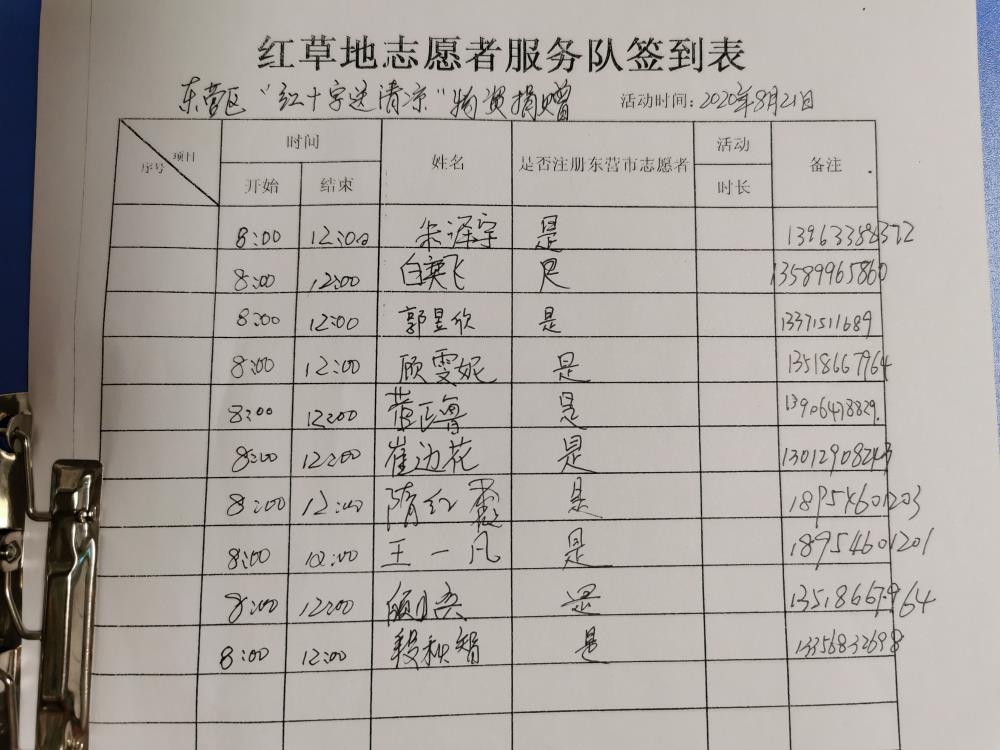 红草地志愿者服务队签到表
东营区“红十字送清凉”物资捐赠 活动时间:2020年8月21日
项目 序号 时间 姓名 是否注册东营市志愿者 活动 备注
开始 结束 时长
8:00 12:00 朱泽宇 是 13963388372
8:00 12:00 白奕飞 是 13589965860
8:00 12:00 郭昱欣 是 13371511689
8:00 12:00 顾雯妮 是 13518667964
8:00 12:00 是 13906478829.
8:00 12:00 崔边花 是
8:00 12:00 隋红霞 是 18954601203
8:00 12:00 王一凡 是 18954601201
8:00 12:00 是 13518667964
8:00 12:00 段秋智 是 13356832698